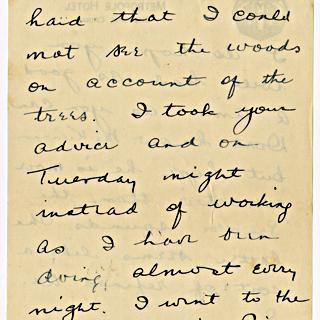 haid that I could
not see the woods
on account of the
trees. I took your
advice and on
Tuesday night
instead of working
as I have been
doing, almost every
night. I went to the